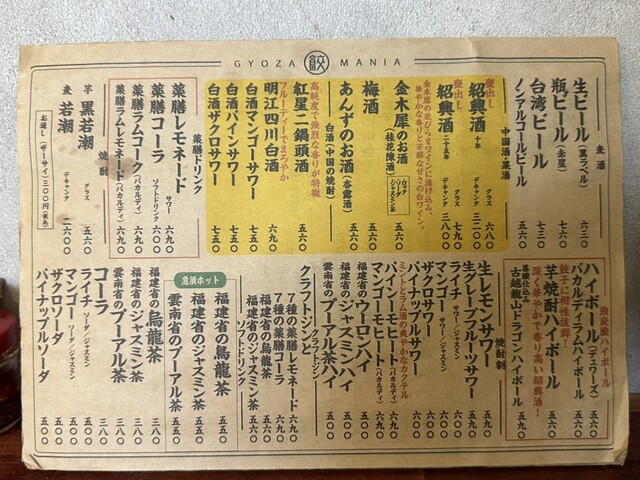 GYOZA 餃 MANIA
麦酒
生ビール(黒ラベル) 六三〇
瓶ビール(赤星)
台湾ビール
ノンアルコールビール 五五〇
中国酒・果酒
甕出し 紹興酒 十年 グラス 六八〇
デキャンタ 三二〇〇
甕出し 紹興酒 二十五年 グラス 九八〇
デキャンタ
金木犀の花びらを白ワインに漬け込み、
華やかな香りと芳醇な甘さの白ワイン。
金木犀のお酒(桂花陳酒) ロック/ソーダ/ジャスミン茶 五六〇
梅酒 五六〇
あんずのお酒(杏露酒) 五六〇
白酒(中国の焼酎)
高純度で強烈な香りが特徴
紅星二鍋頭酒 五六〇
フルーティーでまろやか
明江四川白酒 六九〇
白酒マンゴーサワー 七五〇
白酒パインサワー 七五〇
白酒ザクロサワー 七五〇
薬膳ドリンク
薬膳レモネード サワー 六九〇
薬膳コーラ ソフトドリンク 六〇〇
薬膳ラムコーク(バカルディ) 六九〇
薬膳ラムレモネード(バカルディ) 六九〇
焼酎
芋 黒若潮 グラス 五六〇
麦 若潮 デキャンタ 二六〇〇
お通し(ザーサイ)三〇〇円(税込)
強炭酸ハイボール
ハイボール(デュワーズ) 五六〇
バカルディラムハイボール 五六〇
餃子に相性抜群!
芋焼酎ハイボール 五六〇
深く華やかで香り高い紹興酒!
古越龍山ドラゴンハイボール 五九〇
焼酎割
生レモンサワー 五九〇
生グレープフルーツサワー 五九〇
ライチ サワー/ジャスミン 六〇〇
マンゴー サワー/ジャスミン 六〇〇
ザクロサワー 六〇〇
パイナップルサワー 六〇〇
ミントとラム酒の爽やかなカクテル
パインモヒート(バカルディ) 六九〇
マンゴーモヒート(バカルディ) 六九〇
福建省のウーロンハイ 五六〇
福建省のジャスミンハイ 五六〇
雲南省のプーアル茶ハイ 五六〇
クラフトジン
クラフトジンと
7種の薬膳レモネード 六九〇
7種の薬膳コーラ 六九〇
福建省の烏龍茶 五六〇
福建省のジャスミン茶 五六〇
ソフトドリンク
急須ホット
福建省の烏龍茶 五五〇
福建省のジャスミン茶 五五〇
雲南省のプーアル茶 五五〇
福建省の烏龍茶 三八〇
福建省のジャスミン茶 三八〇
雲南省のプーアル茶 三八〇
コーラ 三八〇
ライチ ソーダ/ジャスミン 五〇〇
マンゴー ソーダ/ジャスミン 五〇〇
ザクロソーダ 五〇〇
パイナップルソーダ 五〇〇